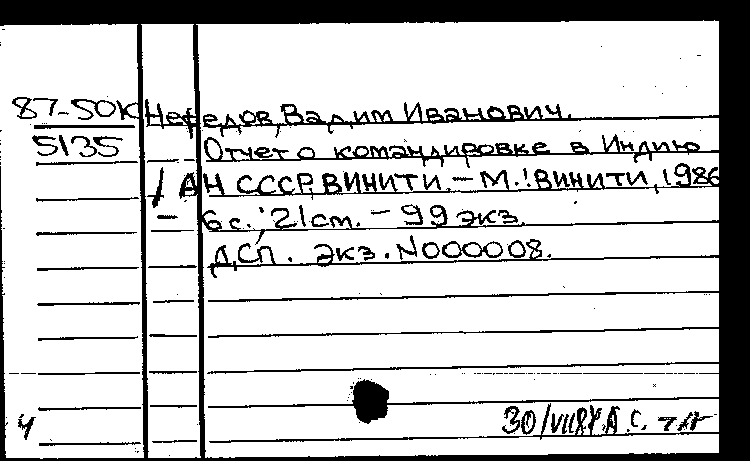 87-50К Нефедов, Вадим Иванович.
5135 Отчет о командировке в Индию
/ АН СССР, ВИНИТИ. – М.: ВИНИТИ, 1986
– 6 с.; 21 см. – 99 экз.
ДСП. Экз. N000008.
4
30/VII 87. А.С.